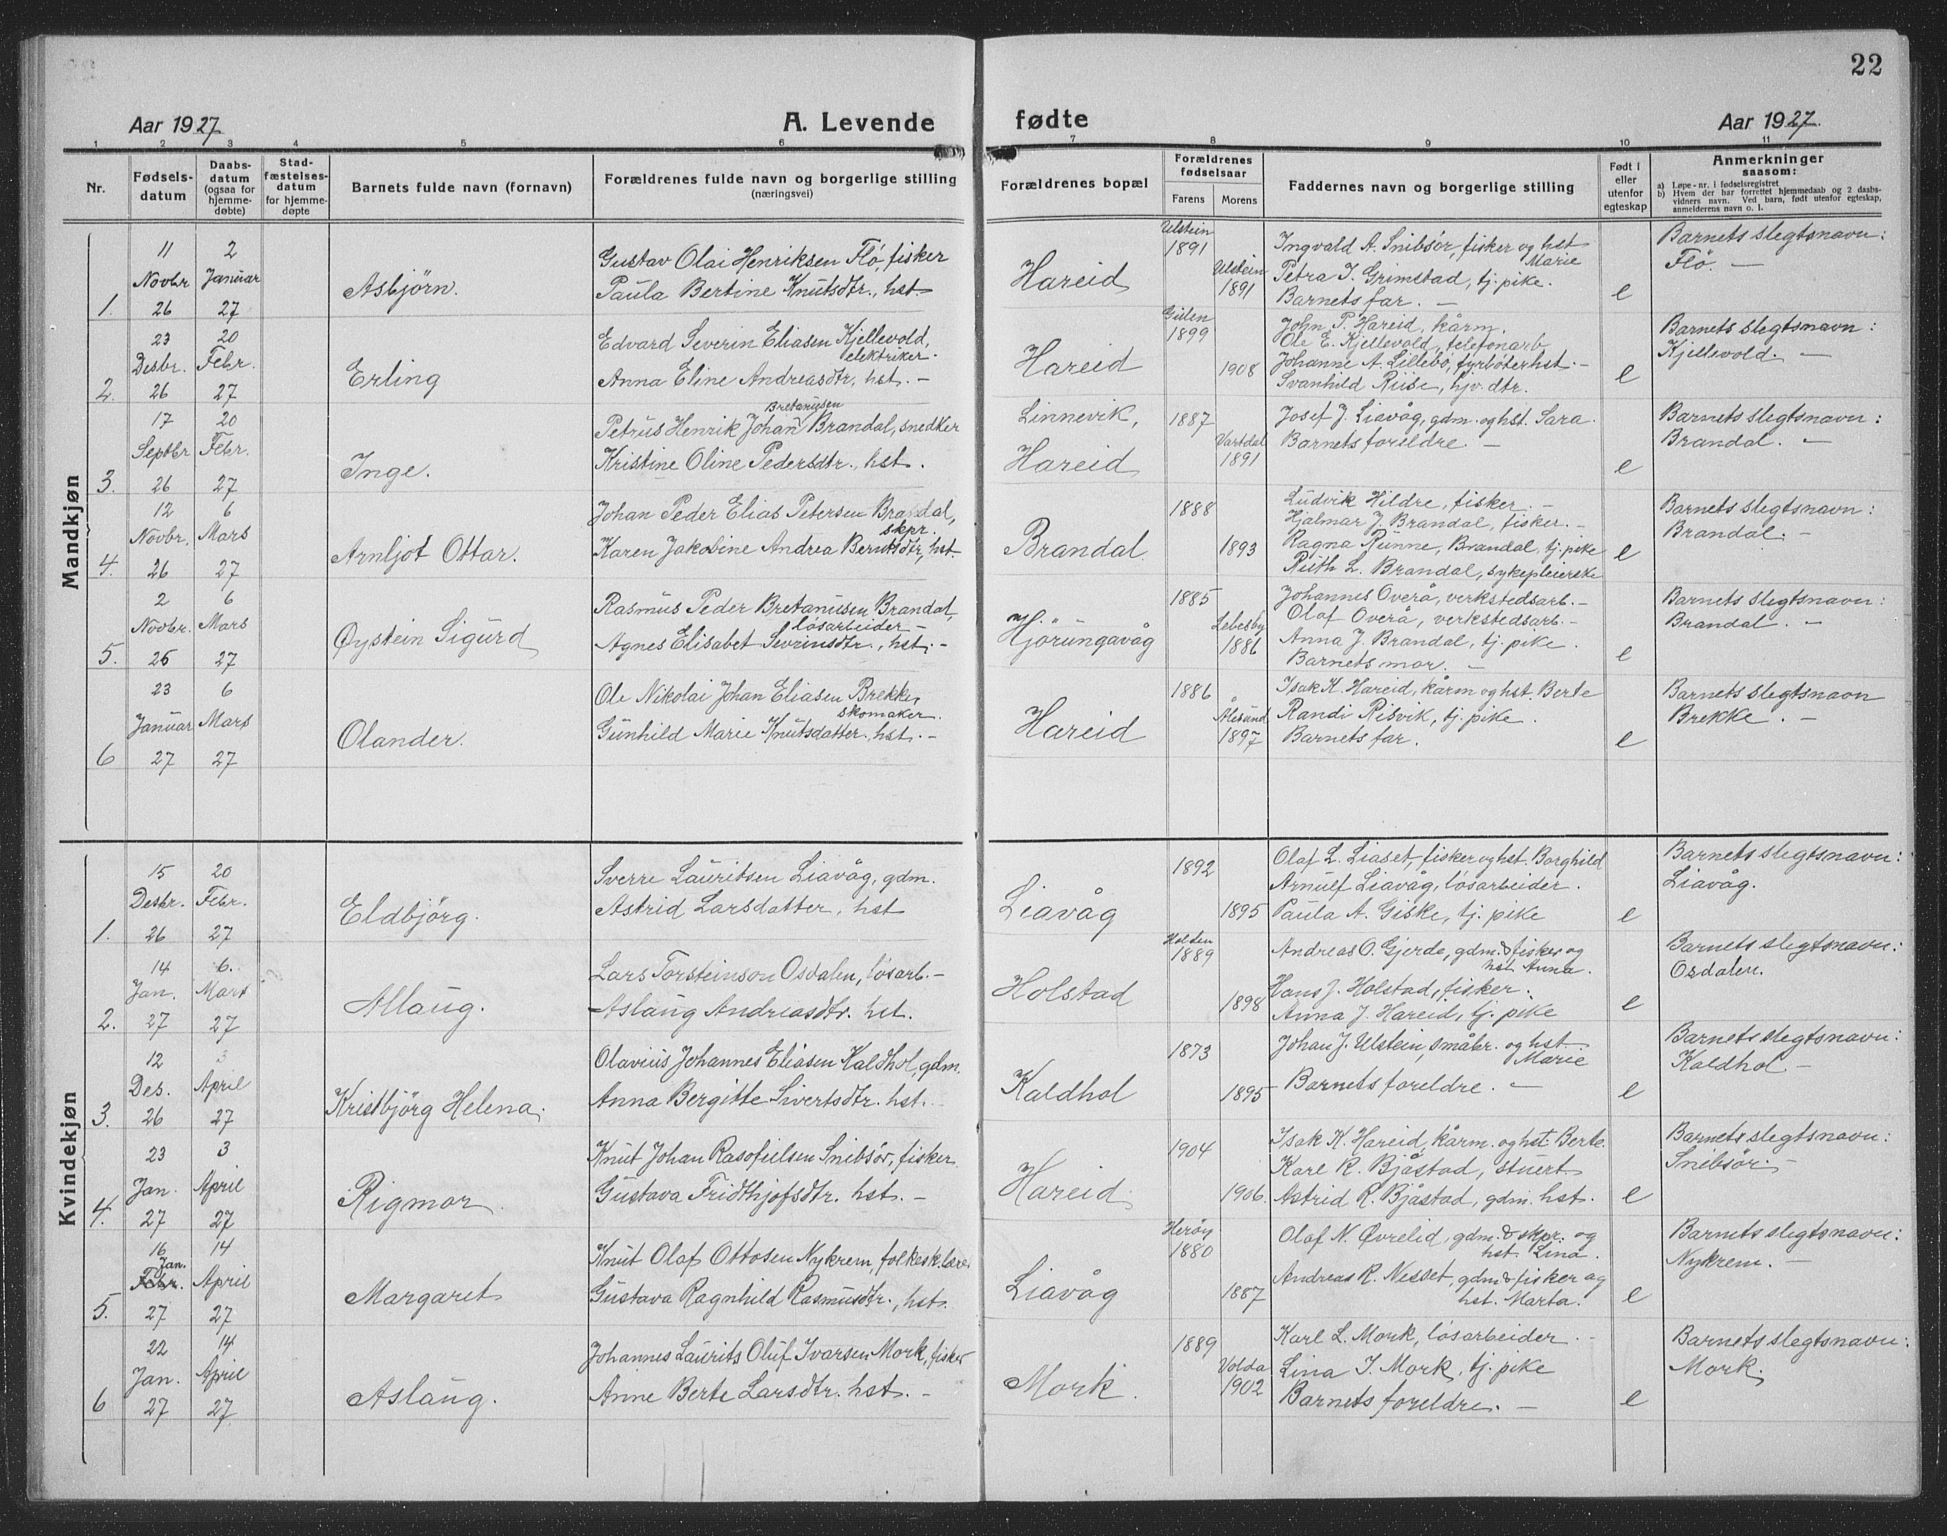 22
Aar 1927
A. Levende fødte
Aar 1927.
1 2 3 4 5 6 7 8 9 10 11
Nr.
Fødsels-
datum
Daabs-
datum
(ogsaa for
hjemme-
døbte)
Stad-
fæstelses-
datum
for hjemme-
døpte
Barnets fulde navn (fornavn)
Forældrenes fulde navn og borgerlige stilling
(næringsvei)
Forældrenes bopæl
Forældrenes
fødselsaar
Farens Morens
Faddernes navn og borgerlige stilling
Født i
eller
utenfor
egteskap
Anmerkninger
saasom:
a) Løpe-nr. i fødselsregistret
b) Hvem der har forrettet hjemmedaab og 2 daabs-
vidners navn. Ved barn, født utenfor egteskap,
anmelderens navn o. l.
Mandkjøn
1. 11 Novbr 26
2 Januar 27
Asbjörn.
Gustav Olai Henriksen Flö, fisker
Paula Bertine Knutsdtr., hst
Hareid
Ulstein 1891
Ulstein 1891
Ingvald A. Snibsör, fisker og hst Marie
Petra I. Grimstad, tj. pike.
Barnets far. –
e
Barnets slegtsnavn:
Flö. –
2. 23 Desbr. 26
20 Febr. 27
Erling
Edvard Severin Eliasen Kjellevold,
elektriker.
Anna Eline Andreasdtr., hst. –
Hareid
Gulen 1899
1908
John P. Hareid, kårm.
Ole E. Kjellevold, telefonarb
Johanne A. Lillebö, fyrböterhst. –
Svanhild Riise, hjv. dtr.
e
Barnets slegtsnavn:
Kjellevold. –
3. 17 Septbr 26
20 Febr. 27
Inge.
Bretanusen
Petrus Henrik Johan Brandal, snedker
Kristine Oline Pedersdtr., hst.
Linnevik,
Hareid
1887
Vartdal 1891
Josef J. Liavåg, gdm. og hst. Sara
Barnets foreldre. –
e
Barnets slegtsnavn:
Brandal. –
4. 12 Novbr. 26
6 Mars 27
Arnljot Ottar.
Johan Peder Elias Petersen Brandal,
skpr.
Karen Jakobine Andrea Berntsdtr, hst
Brandal
1888
1893
Ludvik Hildre, fisker. –
Hjalmar J. Brandal, fisker. –
Ragna Runne, Brandal, tj. pike
Ruth L. Brandal, sykepleierske
e
Barnets slegtsnavn:
Brandal. –
5. 2 Novbr. 26
6 Mars 27
Øystein Sigurd
Rasmus Peder Bretanusen Brandal,
lösarbeider –
Agnes Elisabet Sevrinsdtr., hst. –
Hjörungavåg
1885
Lebesby 1886
Johannes Overå, verkstedsarb. –
Olaf Overå, verkstedsarb. –
Anna J. Brandal, tj. pike.
Barnets mor. –
e
Barnets slegtsnavn:
Brandal. –
6 23 Januar 27
6 Mars 27
Olander.
Ole Nikolai Johan Eliasen Brekke,
skomaker.
Gunhild Marie Knutsdatter, hst. –
Hareid
1886
Ålesund 1897
Isak K. Hareid, kårm og hst. Berte
Randi Risvik, tj. pike.
Barnets far.
e
Barnets slegtsnavn
Brekke. –
Kvindekjøn
1. 15 Desbr. 26
20 Febr. 27
Eldbjörg.
Sverre Lauritsen Liavåg, gdm.
Astrid Larsdatter, hst
Liavåg
1892
1895
Olaf L. Liaset, fisker og hst. Borghild
Arnulf Liavåg, lösarbeider.
Paula A. Giske, tj. pike
e
Barnets slegtsnavn:
Liavåg.
2. 14 Jan. 27
6. Mars 27
Allaug.
Lars Torsteinson Osdalen, lösarb. –
Aslaug Andreasdtr. hst.
Holstad
1889
1898
Andreas O. Gjerde, gdm. & fisker og
hst Anna.
Hans J. Holstad, fisker.
Anna J. Hareid, tj. pike
e
Barnets slegtsnavn:
Osdalen.
3. 12 Des. 26
3 April 27
Kristbjörg Helena.
Olavius Johannes Eliasen Kaldhol, gdm.
Anna Bergitte Sivertsdtr. hst. –
Kaldhol
1873
1895
Johan J. Ulstein, småbr. og hst.
Marie
Barnets foreldre. –
e
Barnets slegtsnavn:
Kaldhol –
4. 23 Jan. 27
3 April 27
Rigmor.
Knut Johan Rasofielsen Snibsör, fisker
Gustava Fridthjofsdtr. hst. –
Hareid
1904
1906.
Isak K. Hareid, kårm. og hst. Berte
Karl R. Bjåstad, stuert
Astrid R. Bjåstad, gdm. hst.
e
Barnets slegtsnavn:
Snibsör. –
5. 16 Jan. Febr. 27
14 April 27
Margaret
Knut Olaf Ottosen Nykrem, folkesk.lærer
Gustava Ragnhild Rasmusdtr., hst.
Liavåg
Heröy 1880
1887
Olaf N. Øvrelid, gdm. & skpr. og
hst. Lina.
Andreas R. Nesset, gdm & fisker og
hst. Marta.
e
Barnets slegtsnavn:
Nykrem. –
6 22 Jan. 27
14 April 27
Aslaug.
Johannes Laurits Oluf Ivarsen Mork, fisker
Anne Berte Larsdtr. hst. –
Mork.
1889
Volda 1902
Karl L. Mork, lösarbeider. –
Lina I. Mork, tj. pike
Barnets foreldre. –
e
Barnets slegtsnavn:
Mork.